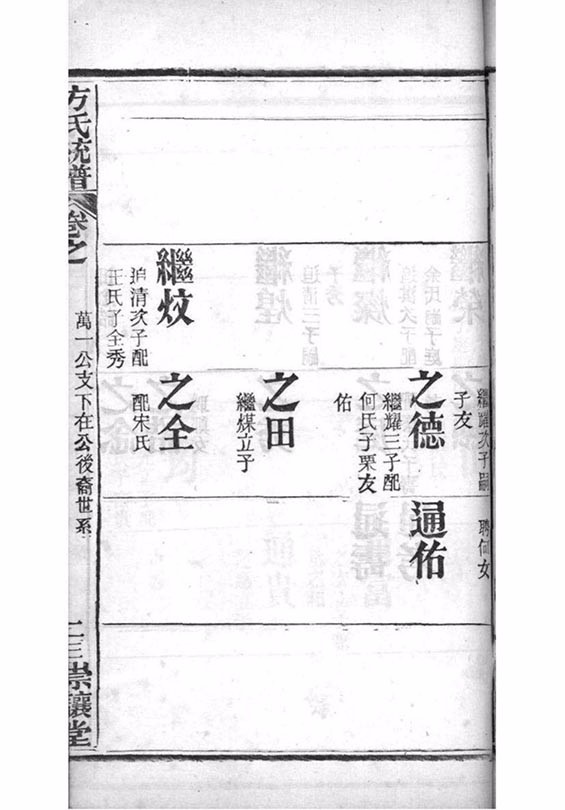 繼耀次子嗣
子友
聘何女
之德
繼耀三子配
何氏子栗友
佑
通佑
之田
繼煤立子
繼炆
追清次子配
王氏子全秀
之全
配宋氏
萬一公支下在公後裔世系
方氏統譜
卷之
崇讓堂